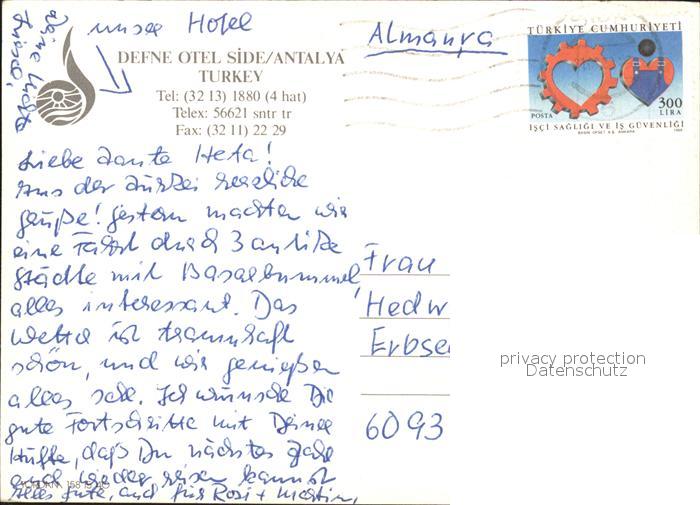 unser Hotel
Deine Nichte
DEFNE OTEL SİDE/ANTALYA
TURKEY
Tel: (32 13) 1880 (4 hat)
Telex: 56621 sntr tr
Fax: (32 11) 22 29
Almanya
TÜRKİYE CUMHURİYETİ
300
LİRA
POSTA
İŞÇİ SAĞLIĞI VE İŞ GÜVENLİĞİ
Liebe Tante Heta!
Aus der Türkei herzliche
Grüße! Gestern machten wir
eine Fahrt durch 3 antike
Städte mit Basarbummel,
alles interessant. Das
Wetter ist traumhaft
schön, und wir genießen
alles sehr. Ich wünsche Dir
gute Fortschritte mit Deiner
Hüfte, daß Du nächstes Jahr
auch wieder reisen kannst
Alles Gute, auch für Rosi + Martin,
Frau
Hedw
Erbse
6093
privacy protection
Datenschutz